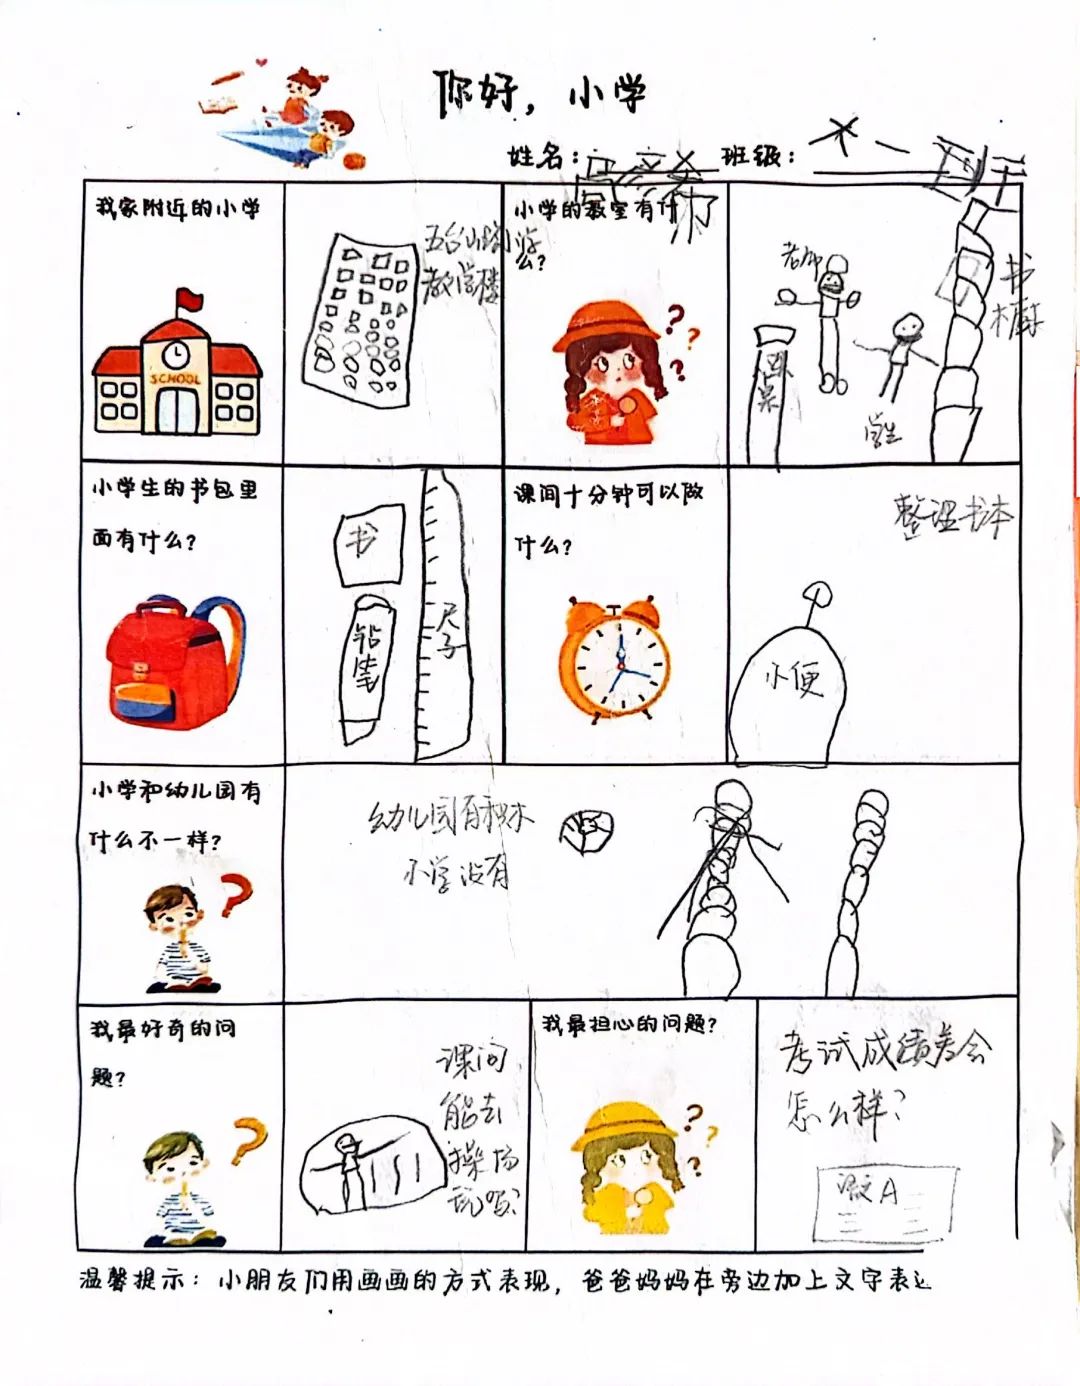 你好，小学
姓名：
班级：
我家附近的小学
SCHOOL
五台山
教学楼
小学的教室有什
么？
老师
书
橱
学生
小学生的书包里
面有什么？
书
铅笔
尺子
课间十分钟可以做
什么？
整理书本
小便
小学和幼儿园有
什么不一样？
幼儿园有积木
小学没有
我最好奇的问
题？
课间
能去
操场
玩吗？
我最担心的问题？
考试成绩差会
怎么样？
语文A
温馨提示：小朋友们用画画的方式表现，爸爸妈妈在旁边加上文字表